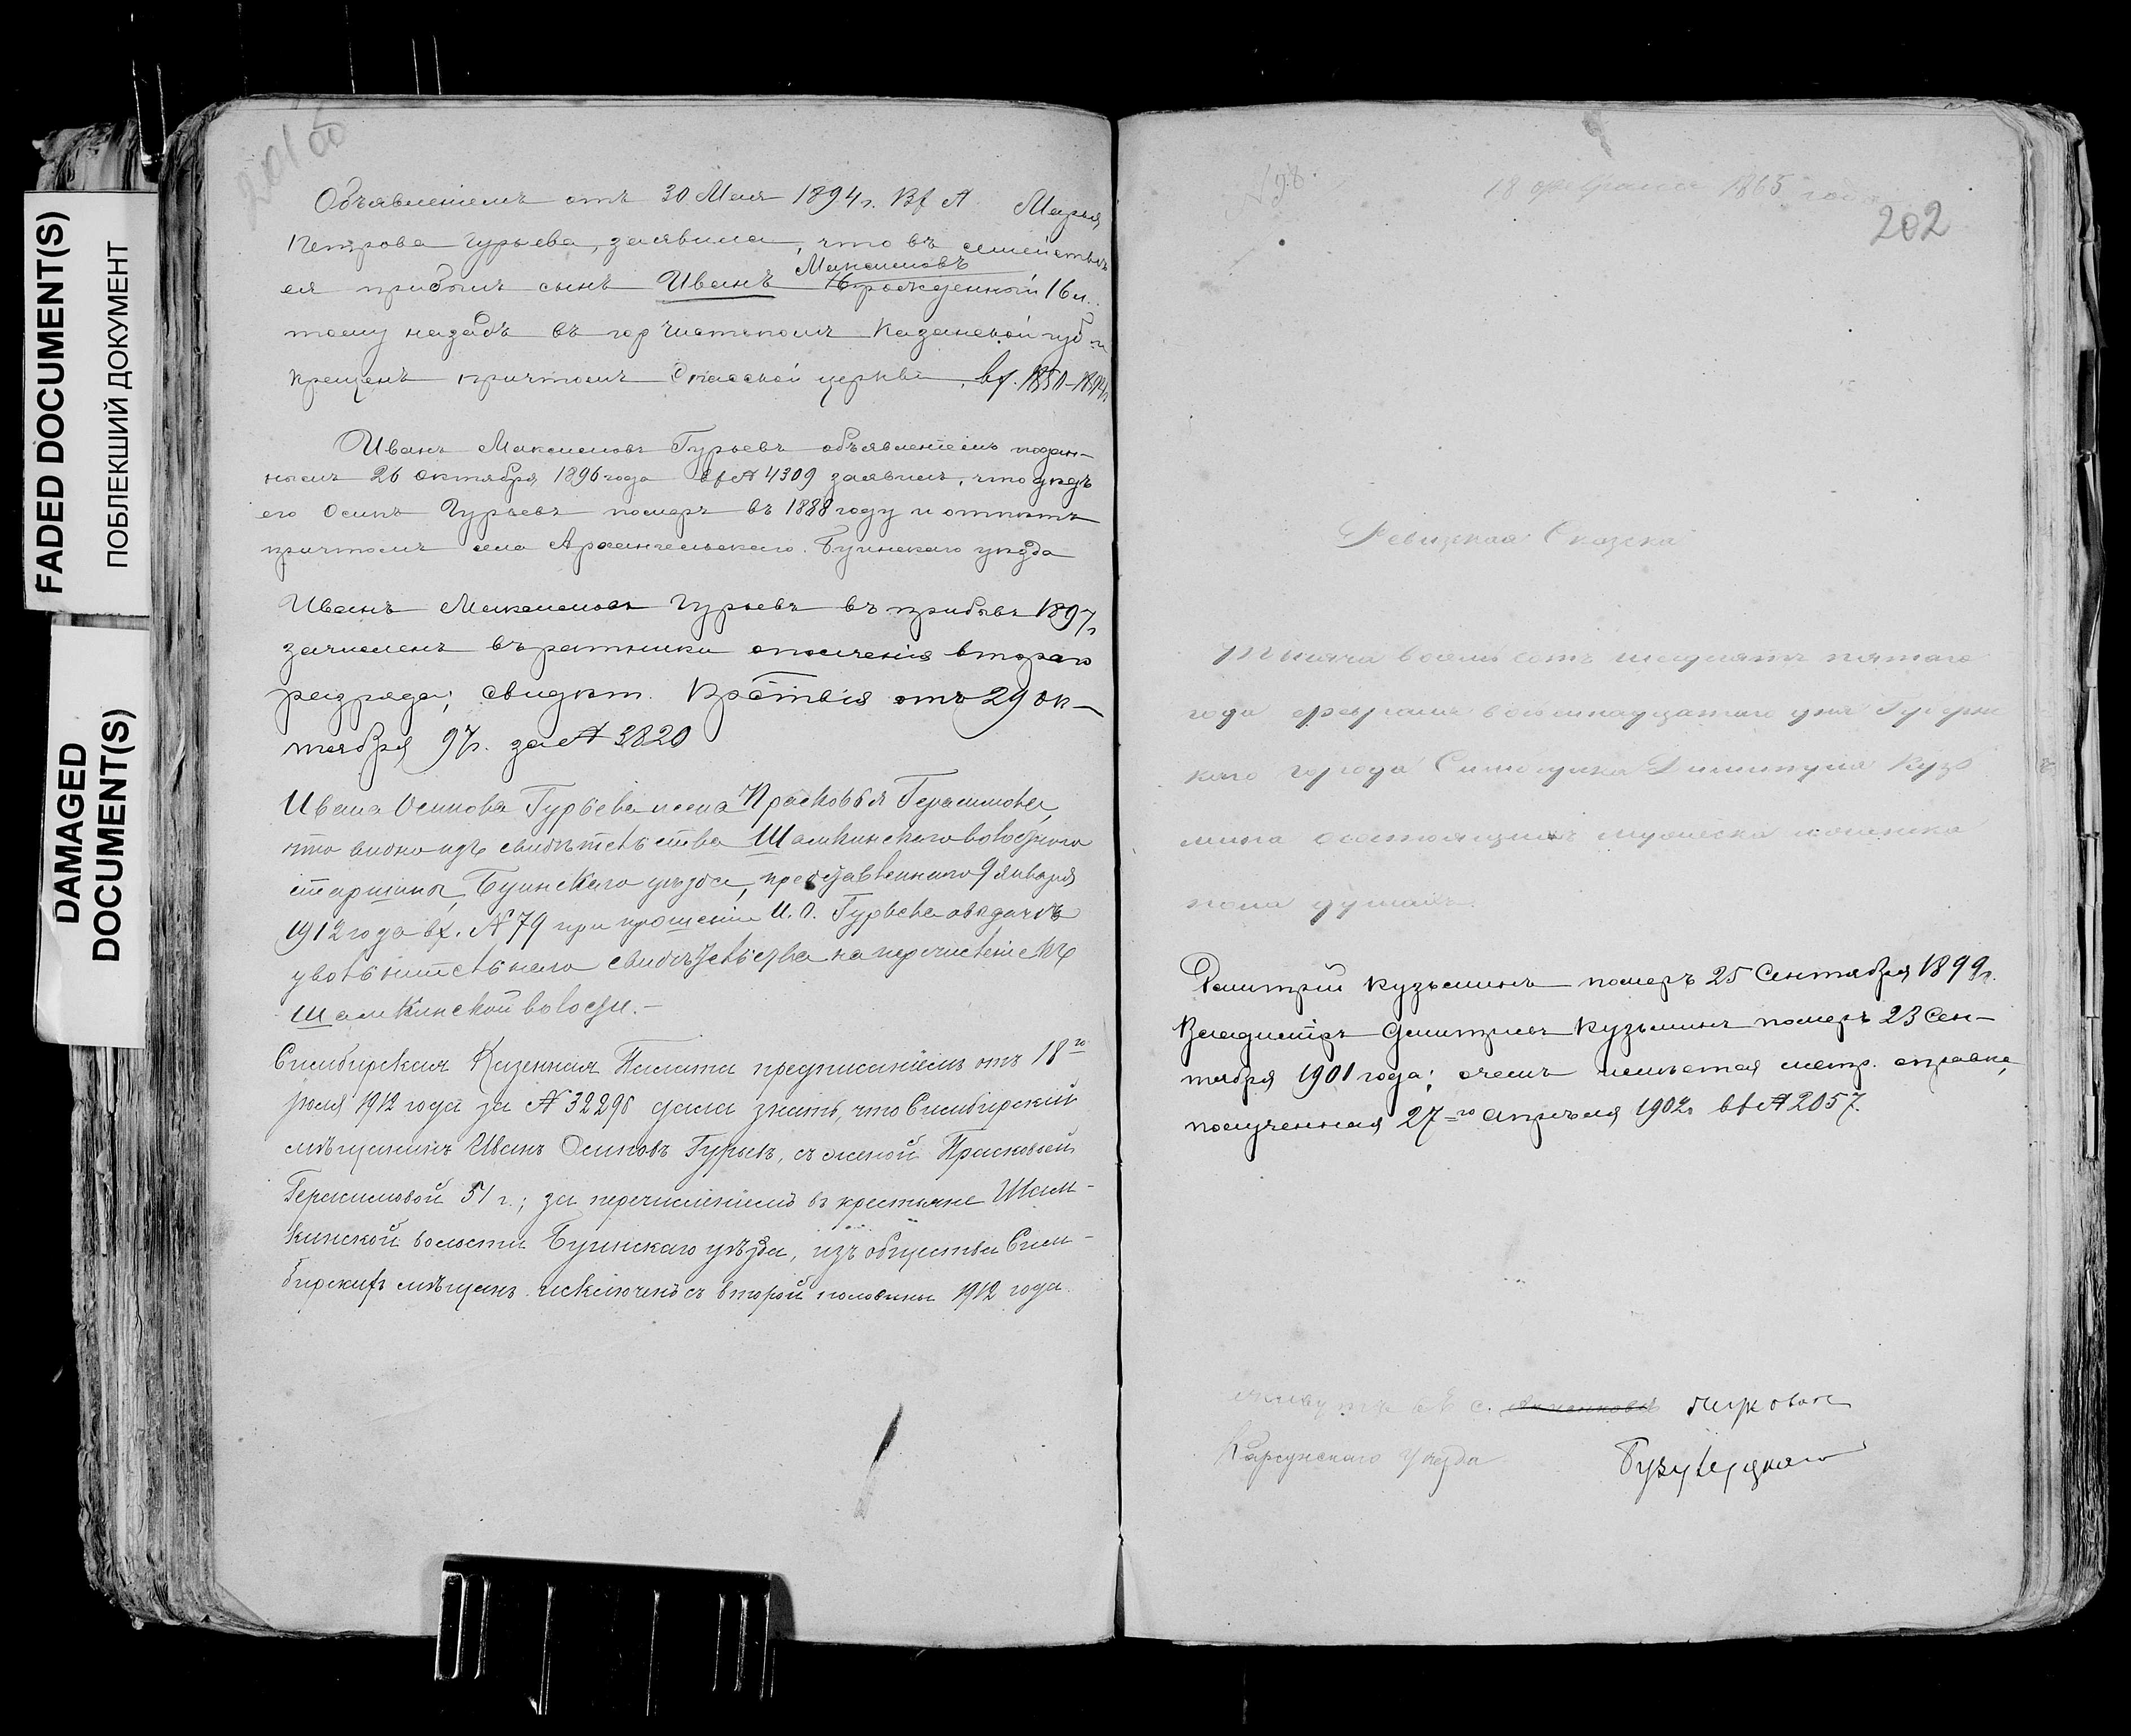 FADED DOCUMENT(S)
ПОБЛЕКШИЙ ДОКУМЕНТ
DAMAGED
DOCUMENT(S)
201 об
Объявленіемъ отъ 30 Мая 1894 г. Вх № Марья
Петрова Гурьева, заявила, что въ семействѣ
ея прибылъ сынъ Иванъ Максимовъ рожденный 16 л.
тому назадъ въ гор Чистополѣ Казанской губ и
крещенъ причтомъ Спасской церкви, вх. 1850-1894 г
Иванъ Максимовъ Гурьевъ объявленіемъ подан-
нымъ 26 октября 1896 года вх № 4309 заявилъ, что дядъ
его Осипъ Гурьевъ померъ въ 1888 году и отпѣтъ
причтомъ села Архангельскаго. Буинскаго уѣзда
Иванъ Максимовъ Гурьевъ въ призывъ 1897 г
зачисленъ въ ратники ополченія второго
разряда; свидѣт. Пр-ствія отъ 29 ок-
тября 97 г. за № 3820
Ивана Осипова Гурьева жена Прасковья Герасимова,
что видно изъ свидѣтельства Шамкинскаго волостного
старшины, Буинскаго уѣзда, представленнаго 9 января
1912 года вх. № 79 при прошеніи И. О. Гурьева о выдачѣ
увольнительнаго свидѣтельства на перечисленіе къ
Шамкинской волости.-
Симбирская Казенная Палата предписаніемъ отъ 18го
іюля 1912 года за № 32296 дала знать, что Симбирскій
мѣщанинъ Иванъ Осиповъ Гурьевъ, съ женой Прасковьей
Герасимовой 51 г.; за перечисленіемъ въ крестьяне Шам-
кинской волости Буинскаго уѣзда, изъ общества Сим-
бирскихъ мѣщанъ исключенъ съ второй половины 1912 года.
18 февраля 1865 года
202
Ревизская Сказка
Тысяча восемь сотъ шесдятъ пятаго
года февраля восемнадцатаго дня Губернс
каго города Симбирска Димитрія Кузь
мина о состоящихъ мужеска и женска
пола душахъ.
Дмитрій Кузьминъ померъ 25 Сентября 1899 г.
Владиміръ Дмитріевъ Кузьминъ померъ 23 Сен-
тября 1901 года; о чемъ имѣется метр. справка,
полученная 27-го апрѣля 1902 г вх № 2057.
с.
Карсунскаго Уѣзда